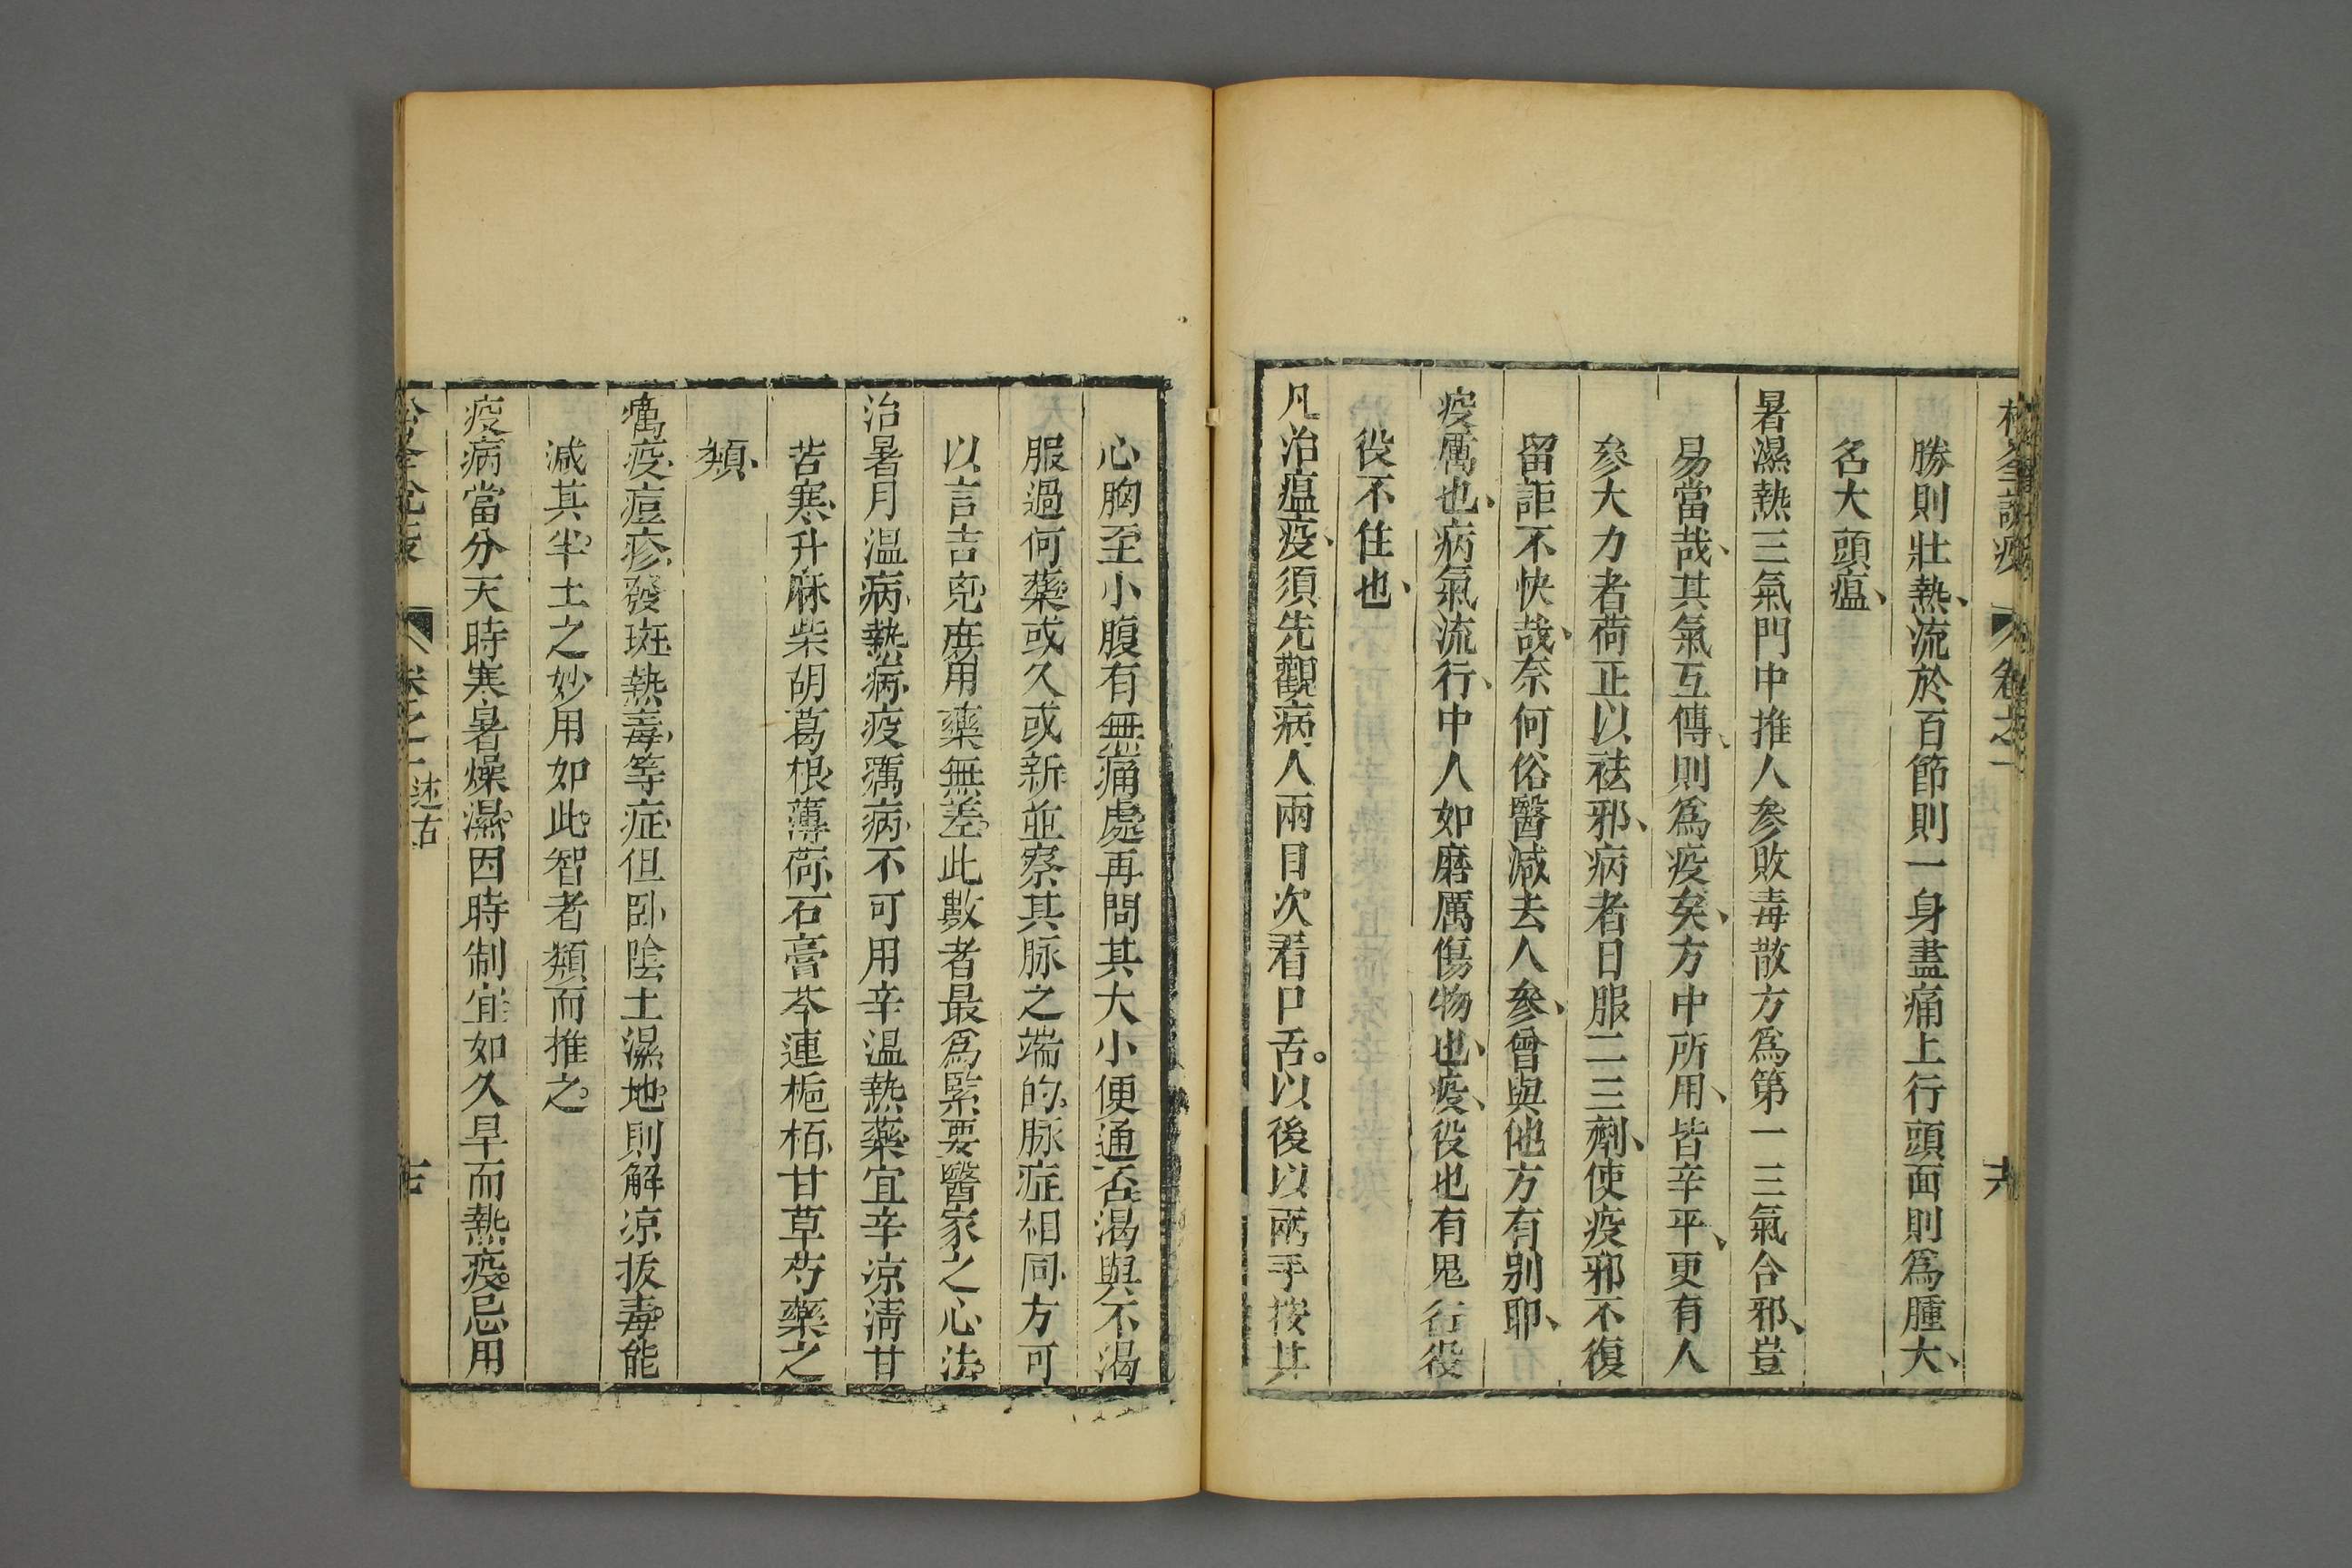 松峯說疫 卷之一 六
勝則壯熱、流於百節則一身盡痛上行頭面則爲腫大、
名大頭瘟、
暑濕熱三氣門中推人參敗毒散方爲第一三氣合邪、豈
易當哉、其氣互傳、則爲疫矣、方中所用、皆辛平、更有人
參大力者荷正以祛邪、病者日服二三劑、使疫邪不復
留詎不快哉、奈何俗醫減去人參、曾與他方有别耶、
疫厲也、病氣流行、中人如磨厲傷物也、疫、役也有鬼行役
役不住也、
凡治瘟疫、須先觀病人兩目次看口舌。以後以兩手按其
心胸至小腹有無痛處再問其大小便通否渴與不渴
服過何藥或久或新並察其脉之端的、脉症相同、方可
以言吉兇庶用藥無差。此數者最爲緊要醫家之心法。
治暑月温病、熱病、疫癘病、不可用辛温熱藥、宜辛凉淸甘
苦寒、升麻柴胡葛根、薄荷、石膏芩連梔栢、甘草芍藥之
類、
癘疫、痘疹、發斑、熱毒、等症、但卧陰土濕地。則解凉拔毒。能
減其半。土之妙用如此。智者類而推之。
疫病當分天時寒暑燥濕。因時制宜如久旱而熱疫。忌用
卷之一 述古